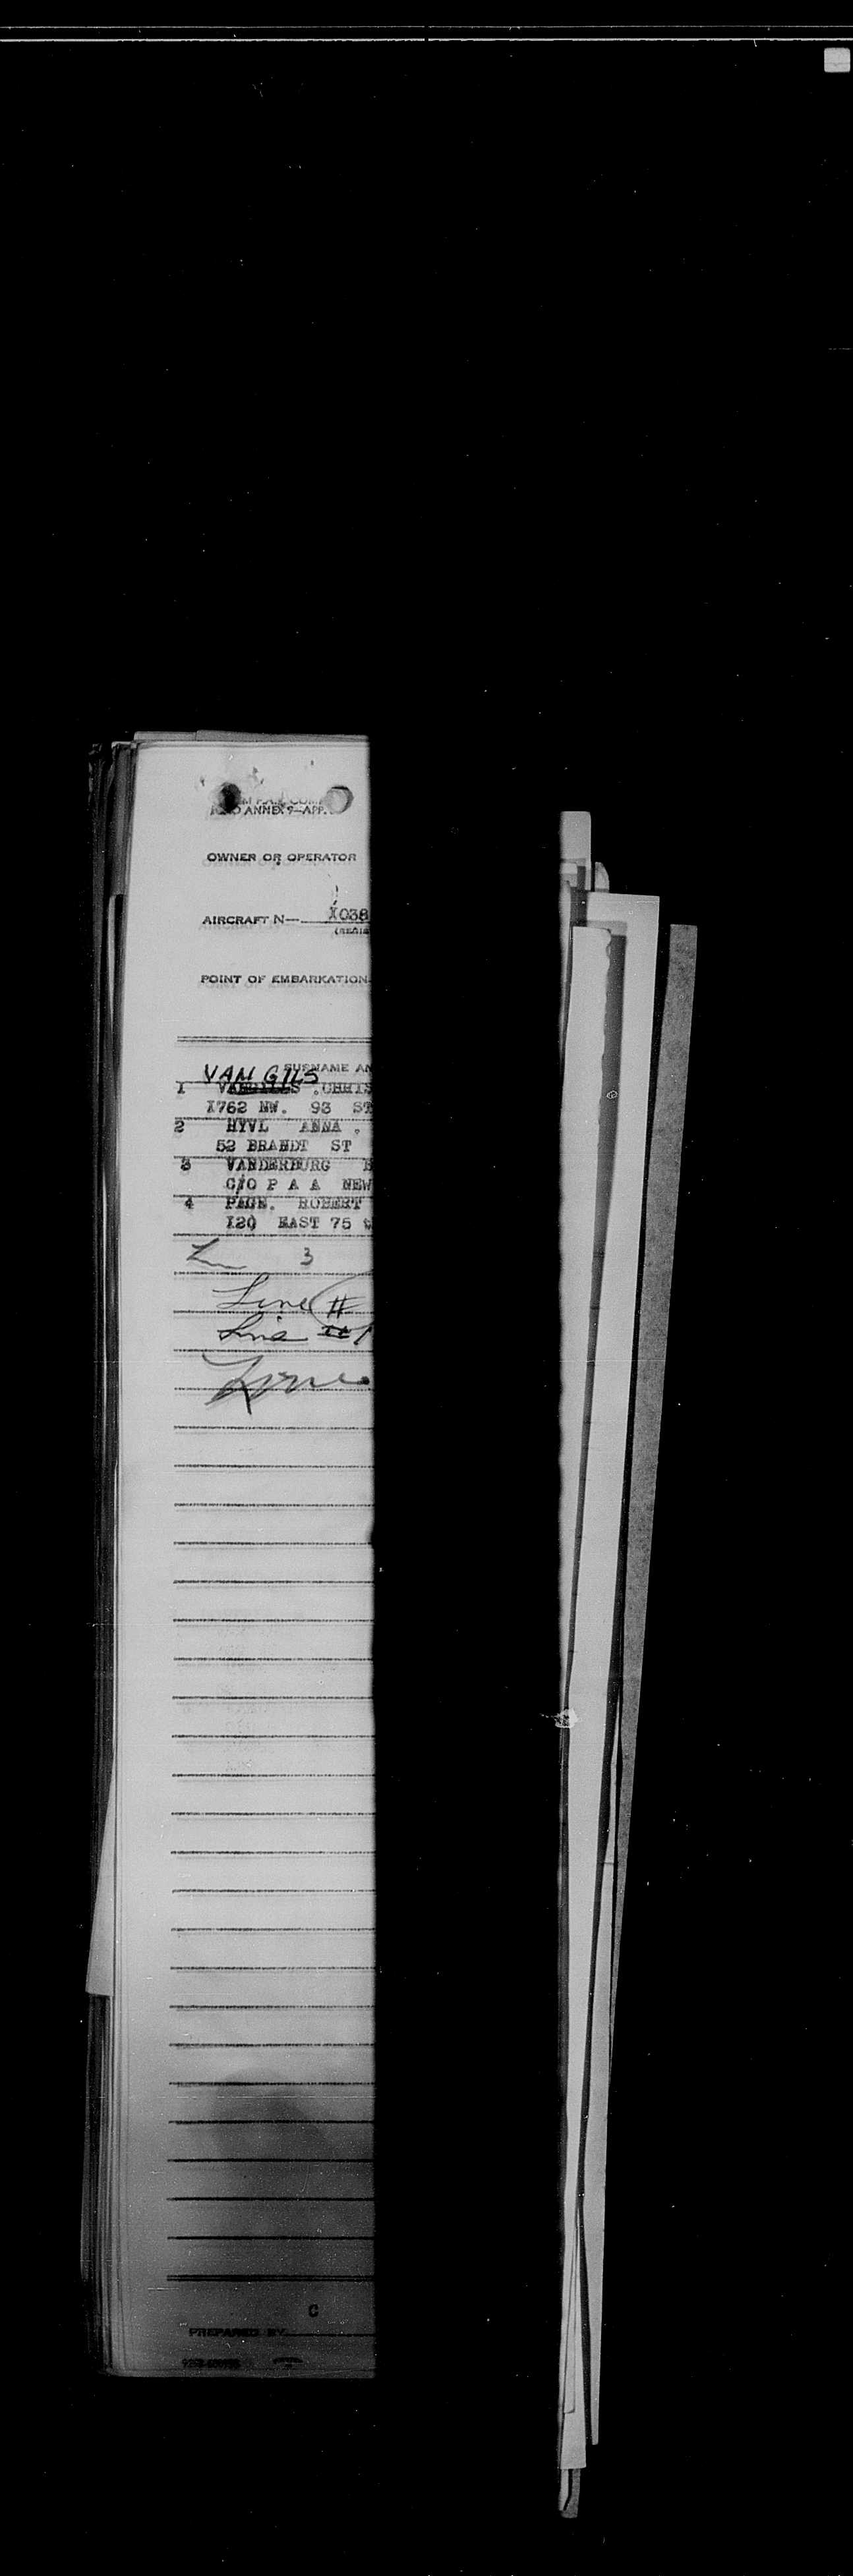 ANNEX 9—APP.
OWNER OR OPERATOR
AIRCRAFT N— X038
POINT OF EMBARKATION
SURNAME AN
VAN GILS
1 CHRIS
1762 NW. 93 ST
2 HYVL ANNA .
52 BRANDT ST
3 VANDERBURG
C/O P A A NEW
4 PAGE. ROBERT
120 EAST 75
3
Line #
Line #1
Line
C
PREPARED BY